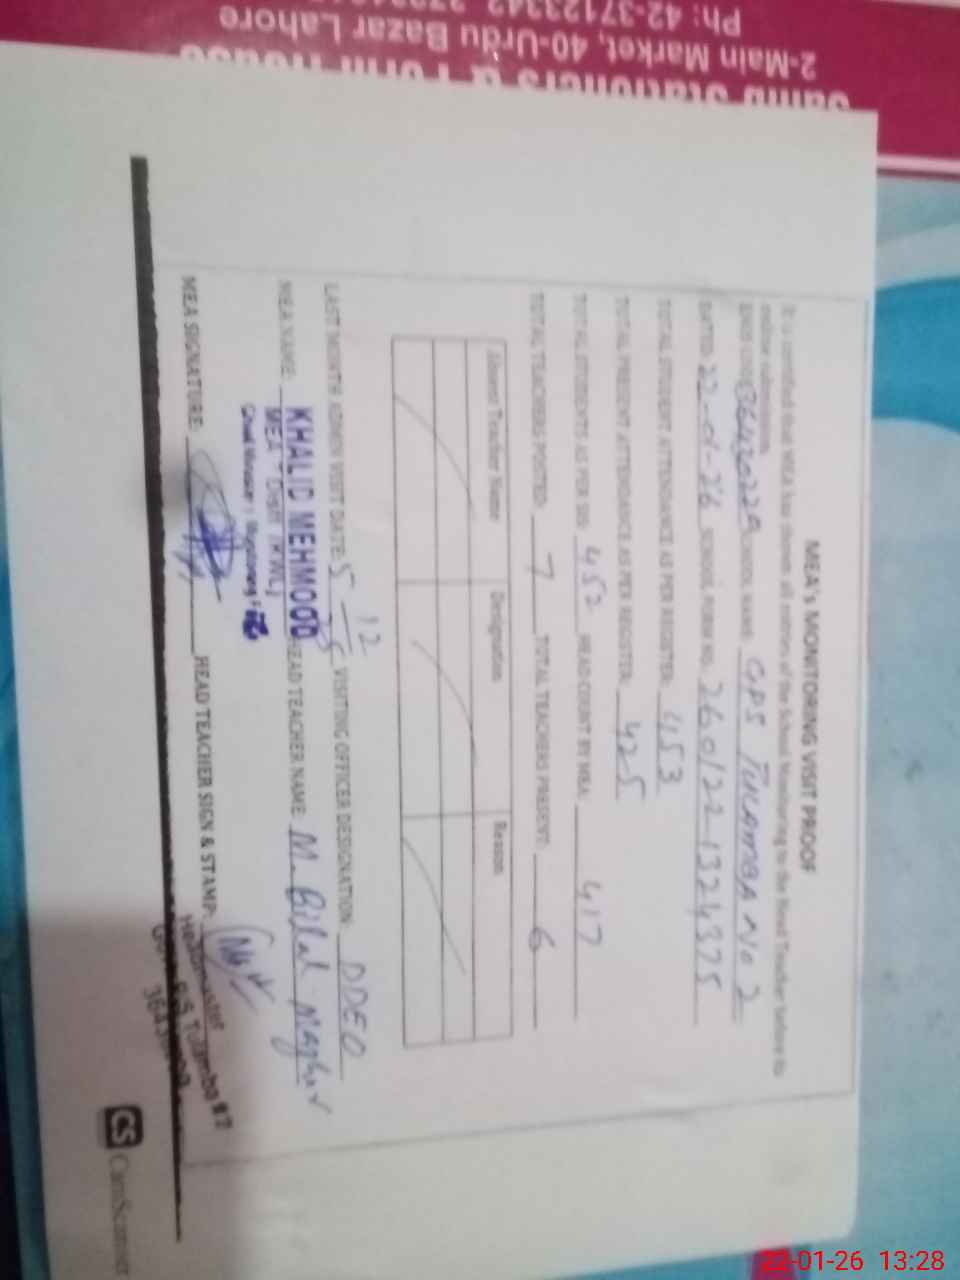 Sami Stationers & Form House
2-Main Market, 40-Urdu Bazar Lahore
Ph: 42-37123342
MEA's MONITORING VISIT PROOF
It is certified that MEA has shown all entries of the School Monitoring to the Head Teacher before its
online submission.
EMIS CODE SCHOOL NAME: GPS TULAMBA No 2
DATED: 22-01-26 SCHOOL FORM NO. 260122-1324375
TOTAL STUDENT ATTENDANCE AS PER REGISTER: 453
TOTAL PRESENT ATTENDANCE AS PER REGISTER: 425
TOTAL STUDENTS AS PER SIS: 452 HEAD COUNT BY MEA: 417
TOTAL TEACHERS POSTED: 7 TOTAL TEACHERS PRESENT: 6
Absent Teacher Name Designation Reason
LAST MONTH ADMIN VISIT DATE: 5 12 VISITING OFFICER DESIGNATION DDEO
MEA NAME: KHALID MEHMOOD HEAD TEACHER NAME: M. Bilal Mazhar
MEA
Chief Minister Monitoring F
MEA SIGNATURE: HEAD TEACHER SIGN & STAMP:
Headmaster
Tulamba #2
CS CamScanner
22-01-26 13:28